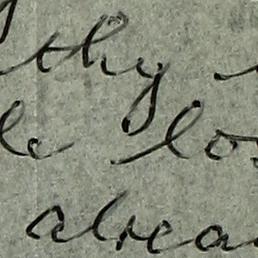 thy
le lo
alrea